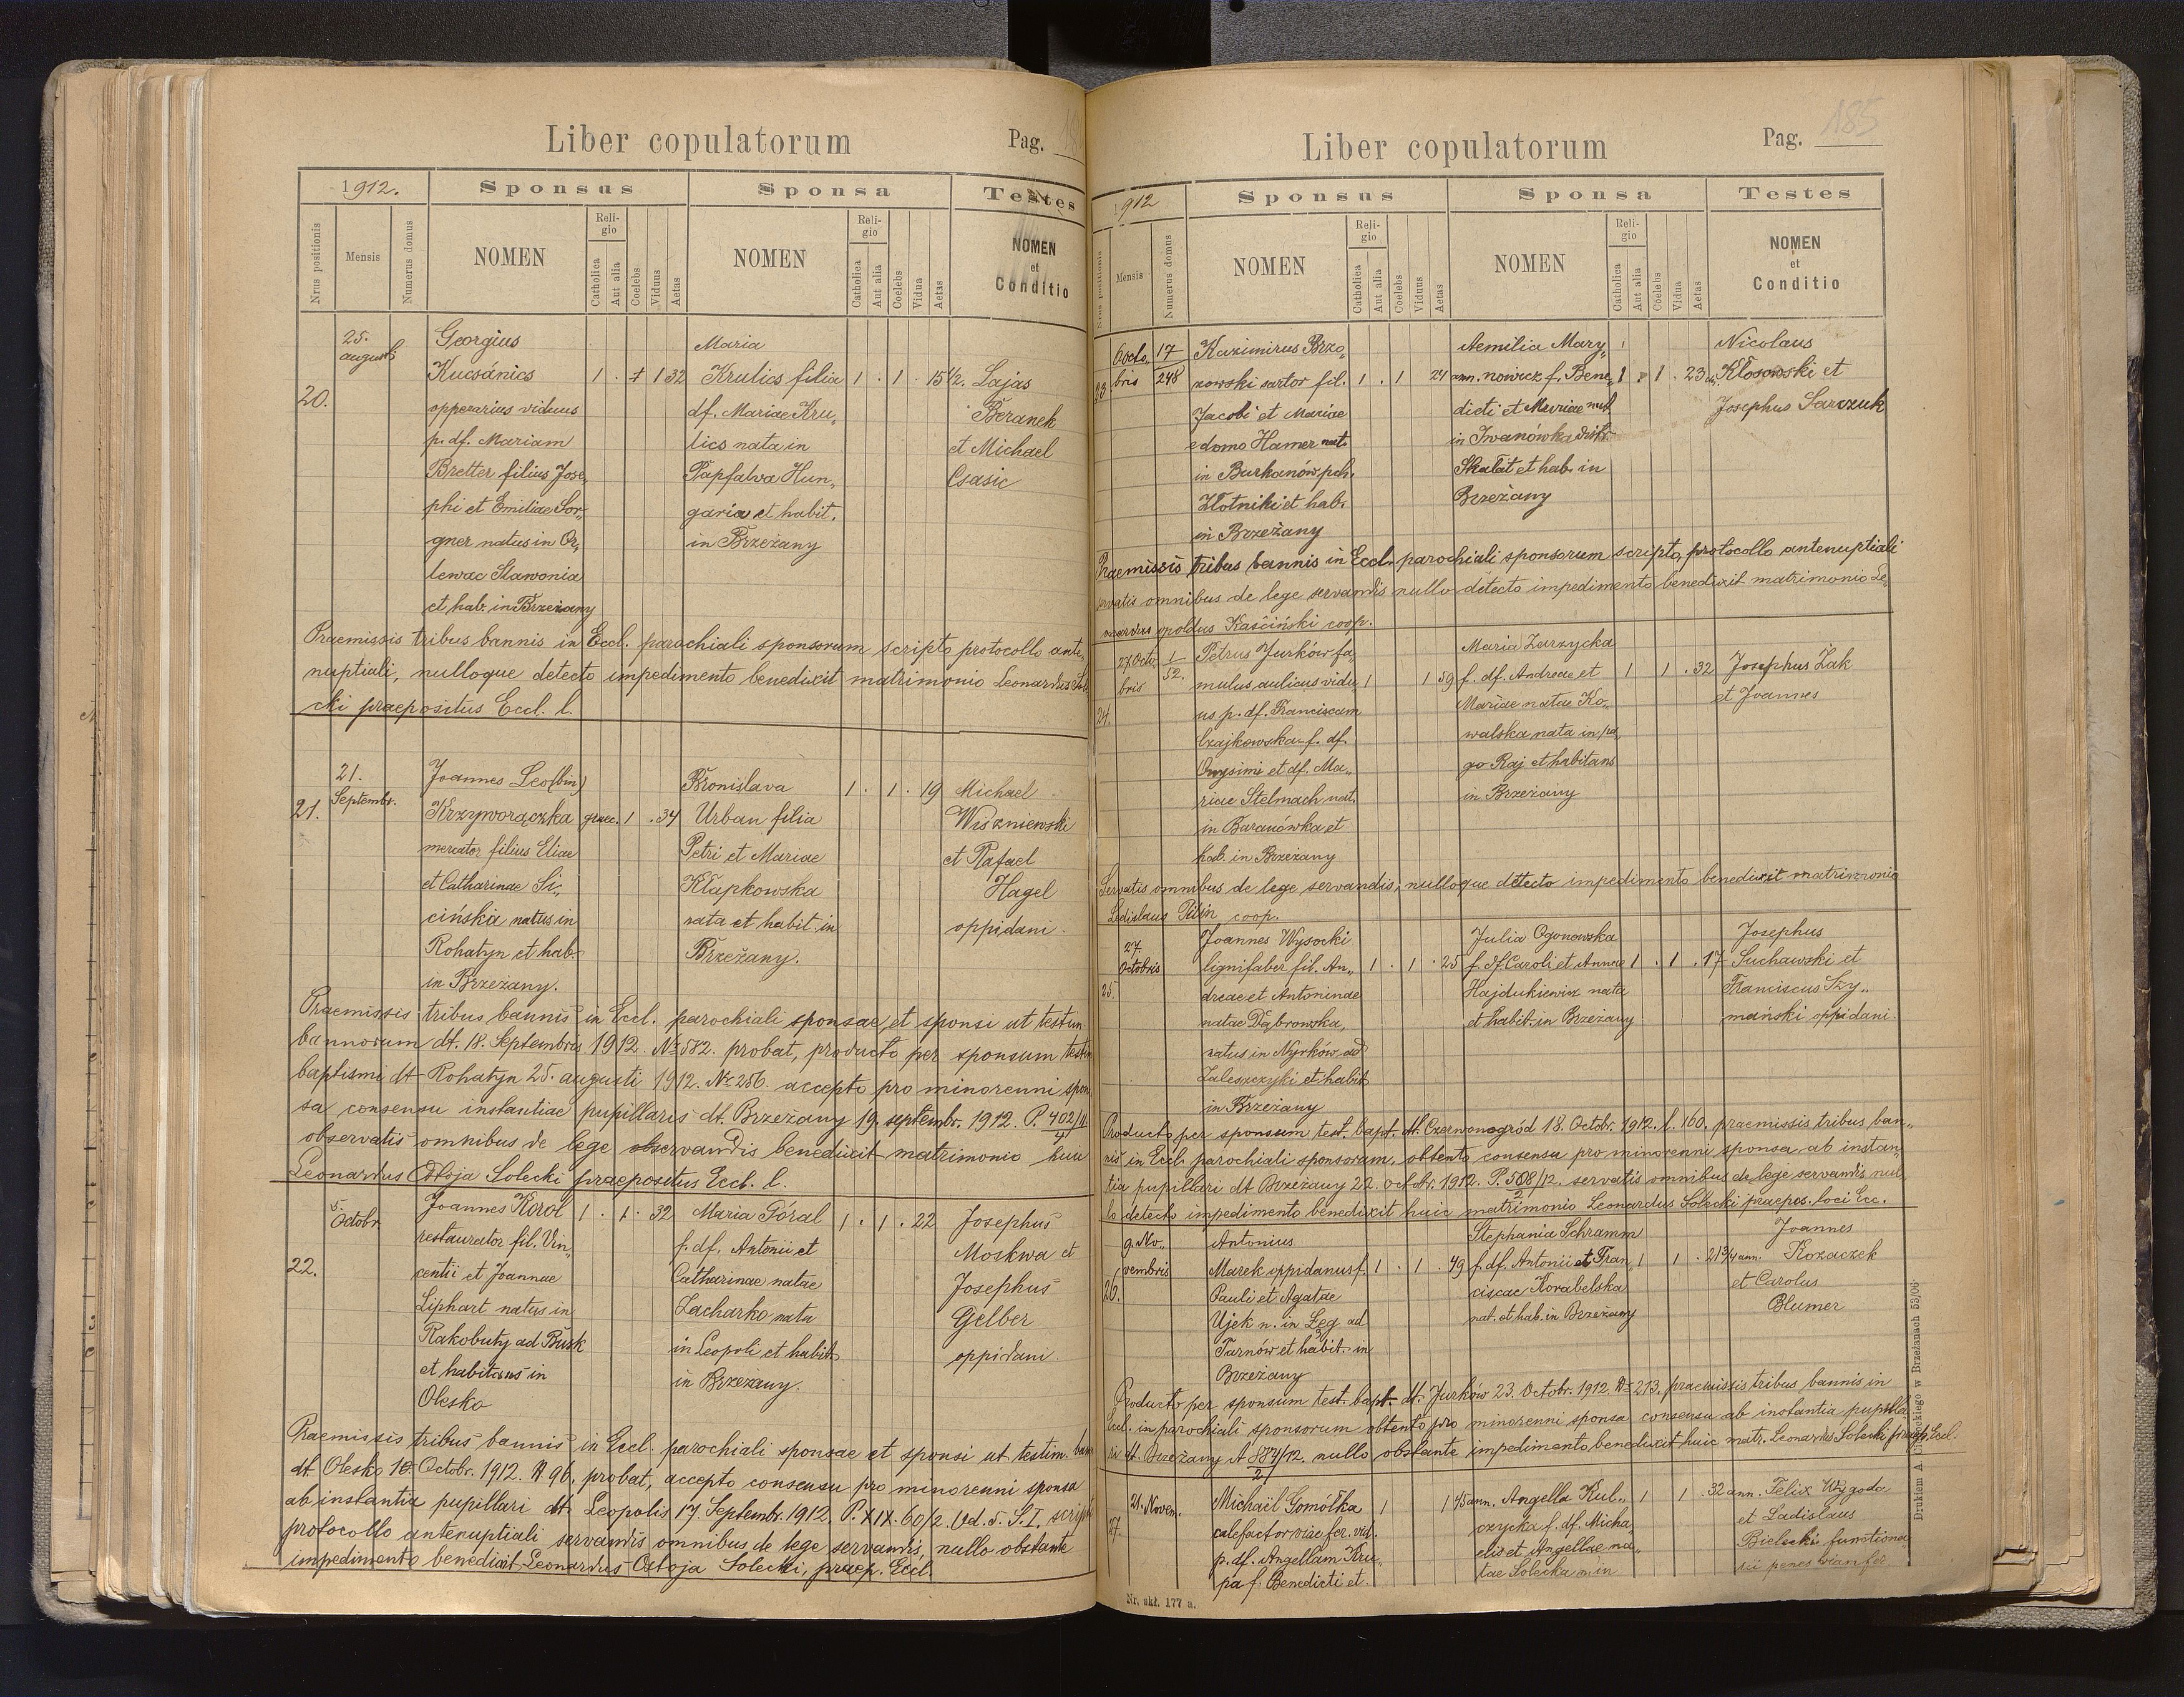 Liber copulatorum
Pag.
1912.
Sponsus
Sponsa
Testes
Nrus positionis
Mensis
Numerus domus
NOMEN
Religio
Catholica
Aut alia
Coelebs
Viduus
Aetas
NOMEN
Religio
Catholica
Aut alia
Coelebs
Vidua
Aetas
NOMEN
et
Conditio
20.
25.
augusti
Georgius
Kucsánics
opperarius viduus
p. df. Mariam
Bretter filius Jose„
phi et Emiliae Sor„
gner natus in Or„
lewac Slawonia
et hab. in Brzeżany
1 . 1 1 32
Maria
Krulics filia
df. Mariae Kru„
lics nata in
Papfalva Hun„
garia et habit.
in Brzeżany
1 . 1 . 15½.
Lajas
Beranek
et Michael
Csasic
Praemissis tribus bannis in Eccl. parochiali sponsorum scripto protocollo ante„
nuptiali, nulloque detecto impedimento benedixit matrimonio Leonardus So
cki praepositus Eccl. l.
21.
21.
Septembr.
Joannes Leo (bin)
Krzyworączka
mercator filius Eliae
et Catharinae Si„
cińska natus in
Rohatyn et hab.
in Brzeżany.
graec. 1 . 34
Bronislava
Urban filia
Petri et Mariae
Kłapkowska
nata et habit. in
Brzeżany.
1 . 1 . 19
Michael
Wiszniewski
et Rafael
Hagel
oppidani
Praemissis tribus bannis in Eccl. parochiali sponsae et sponsi ut testim
bannorum dt. 18. Septembris 1912. № 582. probat, producto per sponsum testim
baptismi dt Rohatyn 25. augusti 1912. № 256. accepto pro minorenni spon
sa consensu instantiae pupillaris dt. Brzeżany 19. septembr. 1912. P. 402/11
4
observatis omnibus de lege observandis benedixit matrimonio huic
Leonardus Ostoja Solecki praepositus Eccl. l.
22.
5.
Octobr.
Joannes Korol
restaurator fil. Vin„
centii et Joannae
Liphart natus in
Rakobuty ad Busk
et habitans in
Olesko
1 . 1 . 32
Maria Góral
f. df. Antonii et
Catharinae natae
Zacharko nata
in Leopoli et habit.
in Brzeżany.
1 . 1 . 22
Josephus
Moskwa et
Josephus
Gelber
oppidani
Praemissis tribus bannis in Eccl. parochiali sponsae et sponsi ut testim. bann
dt Olesko Octobr. 1912. № 96. probat, accepto consensu pro minorenni sponsa
ab instantia pupillari dt. Leopolis 17. Septembr. 1912. P. XIX. 60/2. Od. 5. S. I. script
protocollo antenuptiali servandis omnibus de lege servandis, nullo obstante
impedimento benedixit Leonardus Ostoja Solecki, praep. Eccl.
Liber copulatorum
Pag. 185
1912
Sponsus
Sponsa
Testes
Nrus positionis
Mensis
Numerus domus
NOMEN
Religio
Catholica
Aut alia
Coelebs
Viduus
Aetas
NOMEN
Religio
Catholica
Aut alia
Coelebs
Vidua
Aetas
NOMEN
et
Conditio
23
6 octo„
bris
17
248
Kazimirus Brzo„
zowski sartor fil.
Jacobi et Mariae
e domo Hamer nat.
in Burkanów pch.
Złotniki et hab.
in Brzeżany
1 . 1 24 ann.
Aemilia Mary„
nowicz f. Bene„
dicti et Mariae nat.
in Iwanówka distr.
Skałat et hab. in
Brzeżany
1 . 1 . 23
Nicolaus
Kłosowski et
Josephus Sarczuk
Praemissis tribus bannis in Eccl. parochiali sponsorum scripto, protocollo antenuptiali
servatis omnibus de lege servandis nullo detecto impedimento benedixit matrimonio Le„
opoldus Kaściński coop.
24.
27 Octo„
bris
1
52.
Petrus Jurków fa„
mulus aulicus vidu„
us p. df. Franciscam
Czajkowska f. df.
Onysimi et df. Ma„
riae Stelmach nat.
in Baranówka et
hab. in Brzeżany
1 1 59
Maria Zarzycka
f. df. Andreae et
Mariae natae Ko„
walska nata in pa„
go Raj et habitans
in Brzeżany
1 1 . 32
Josephus Żak
et Joannes
Servatis omnibus de lege servandis, nulloque detecto impedimento benedixit matrimonio
Ladislaus Pilin coop.
25.
27.
Octobris
Joannes Wysocki
lignifaber fil. An„
dreae et Antoninae
natae Dąbrowska,
natus in Nyrków ad
Zaleszczyki et habit.
in Brzeżany
1 . 1 . 25
Julia Ogonowska
f. df. Caroli et Annae
Hajdukiewicz nata
et habit. in Brzeżany
1 . 1 . 17
Josephus
Suchawski et
Franciscus Szy„
mański oppidani
Producto per sponsum test. bapt. dt. Czerwonogród 18. Octobr. 1912. l. 160. praemissis tribus ban„
nis in Eccl. parochiali sponsorum, obtento consensu pro minorenni sponsa ab instan„
tia pupillari dt Brzeżany 22. octobr. 1912. P. 508/12. servatis omnibus de lege servandis nul
2
lo detecto impedimento benedixit huic matrimonio Leonardus Solecki praepos. loci Ecc.
26.
9. No„
vembris
Antonius
Marek oppidanus f.
Pauli et Agatae
Ujek n. in Łęg ad
Tarnów et habit. in
Brzeżany
1 . 1 . 49
Stephania Schramm
f. df. Antonii et Fran„
ciscae Korabelska
nat. et hab. in Brzeżany
1 1 . 21¾ ann.
Joannes
Kozaczek
et Carolus
Blumer
Producto per sponsum test. bapt. dt. Jurków 23. Octobr. 1912. № 213. praemissis tribus bannis in
Eccl. in parochiali sponsorum obtento pro minorenni sponsa consensu ab instantia pupilla
ri dt. Brzeżany A 884/12. nullo obstante impedimento benedixit huic matr. Leonardus Solecki praep. Eccl.
2
27.
21. Novem.
Michaïl Gomółka
calefactor viae fer. vid.
p. df. Angellam Kru„
pa f. Benedicti et
1 1 45 ann.
Angella Kul„
czycka f. df. Micha„
elis et Angellae na„
tae Solecka n. in
1 1 . 32 ann.
Felix Wygoda
et Ladislaus
Bielecki functiona
rii penes viam fer.
Nr. skł. 177 a.